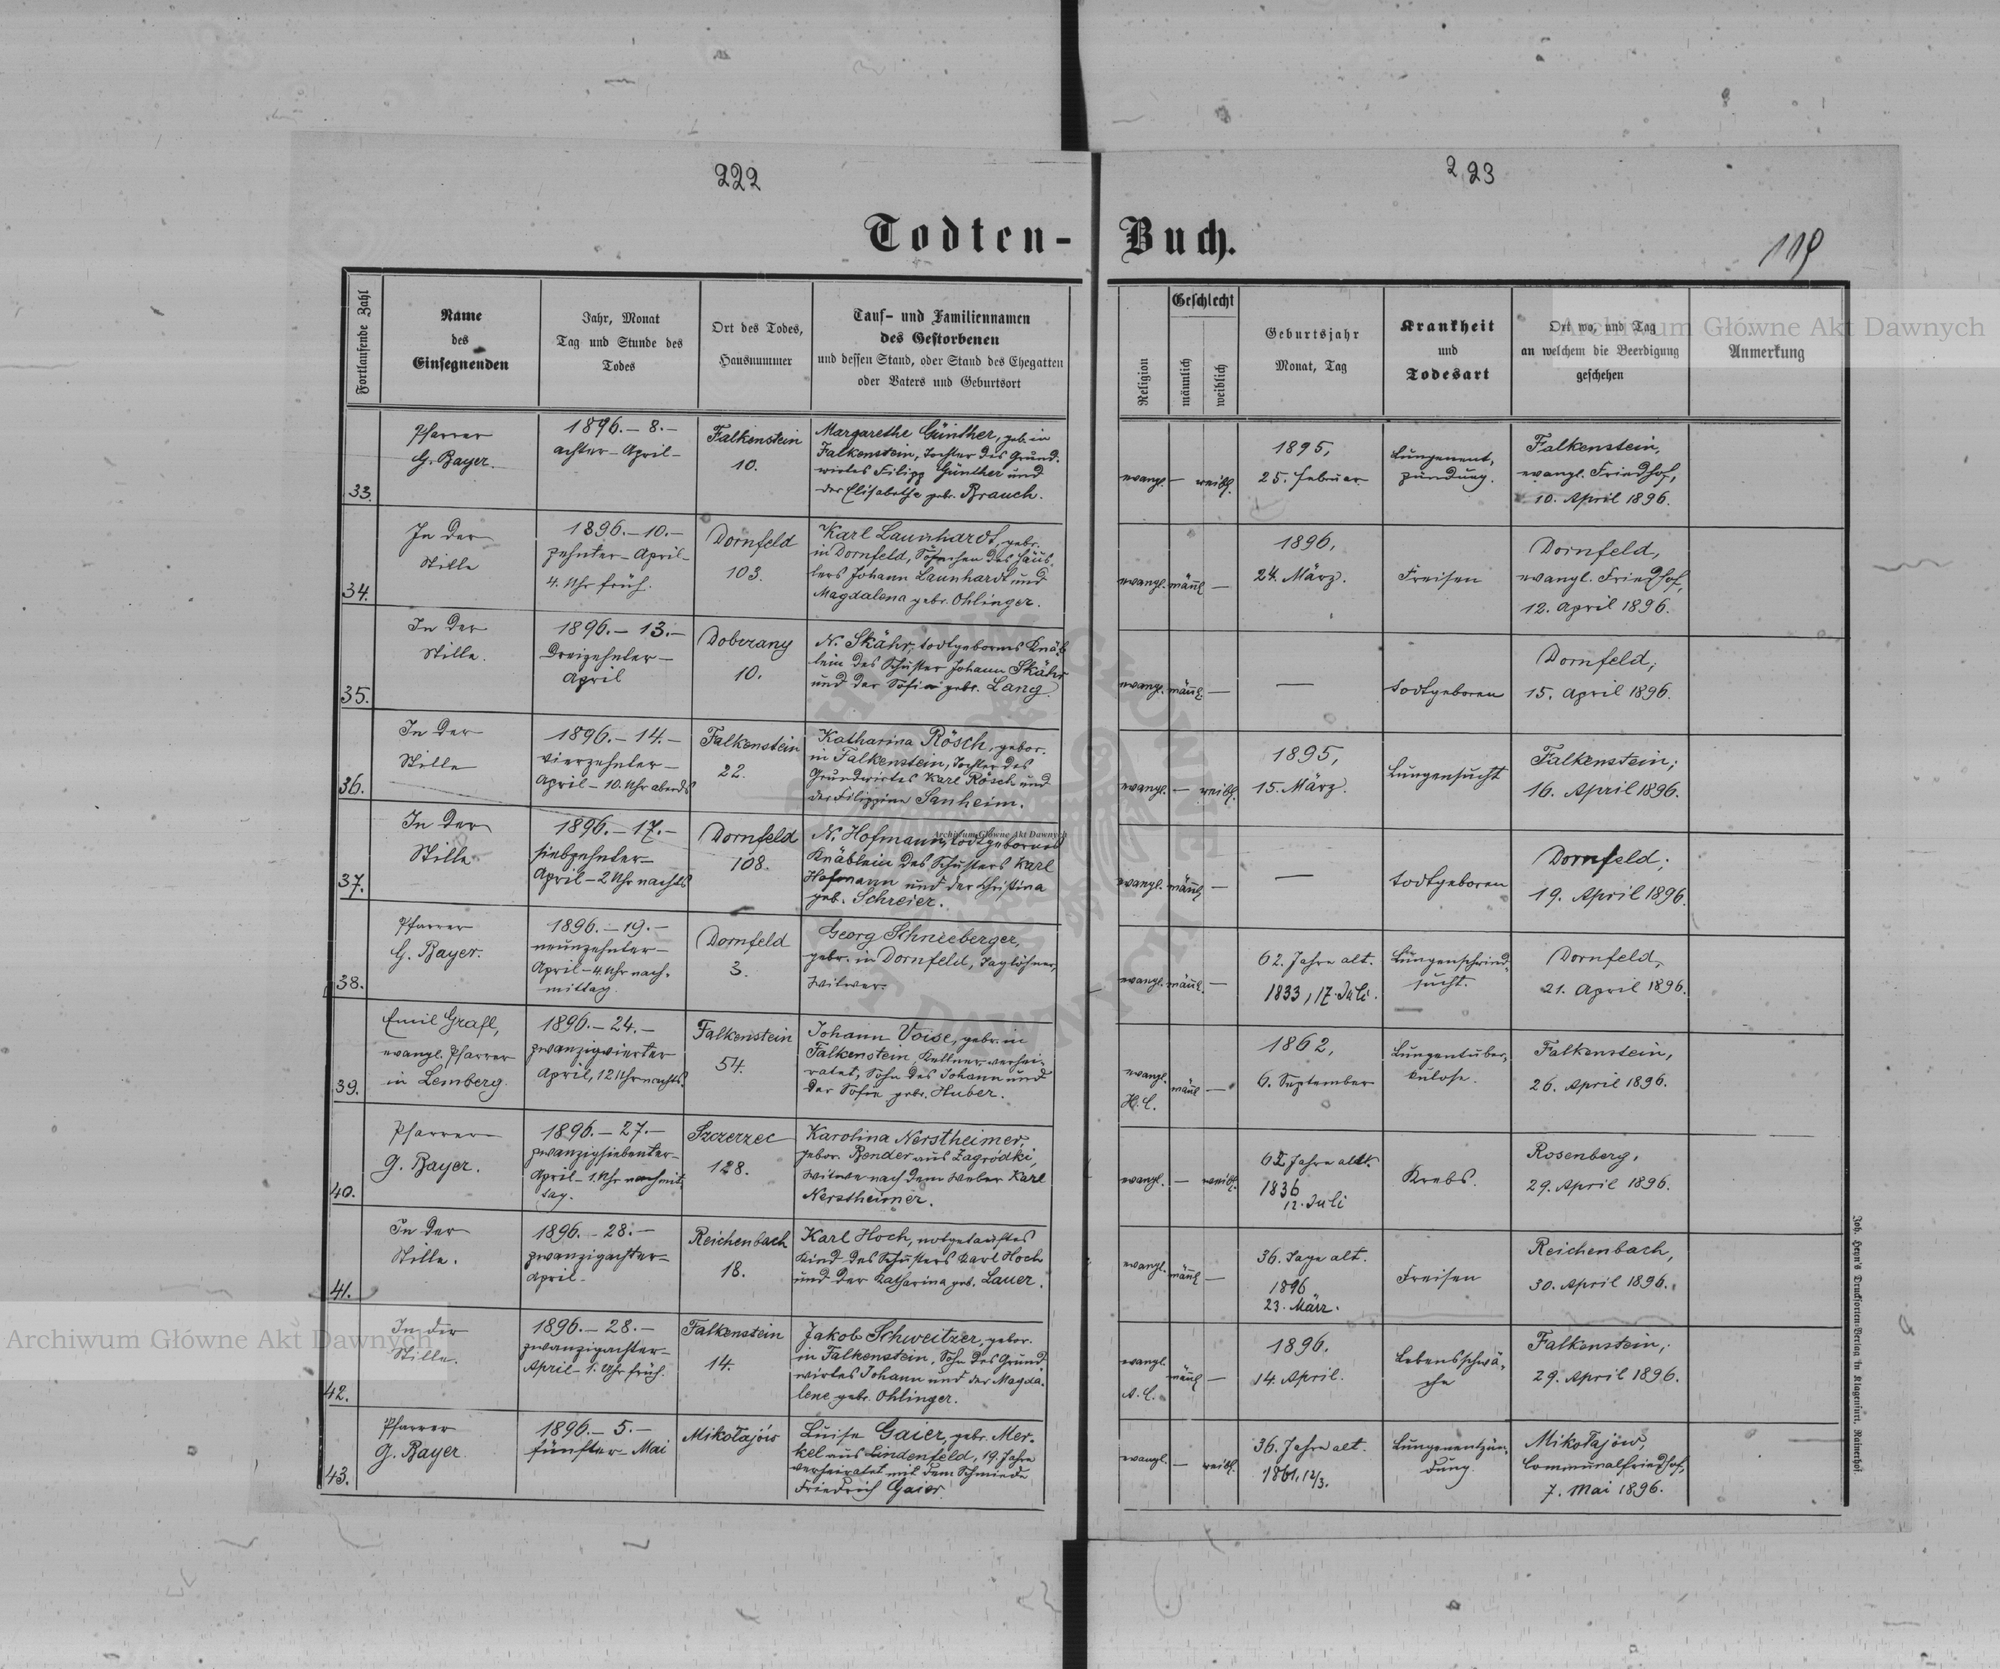 222
223
Todten-Buch.
119
Fortlaufende Zahl
Name
des
Einsegnenden
Jahr, Monat
Tag und Stunde des
Todes
Ort des Todes,
Hausnummer
Tauf- und Familiennamen
des Gestorbenen
und dessen Stand, oder Stand des Ehegatten
oder Vaters und Geburtsort
Religion
Geschlecht
männlich
weiblich
Geburtsjahr
Monat, Tag
Krankheit
und
Todesart
Ort wo, und Tag
an welchem die Beerdigung
geschehen
Anmerkung
33.
Pfarrer
G. Bayer.
1896.- 8.-
achter - April -
Falkenstein
10.
Margarethe Günther, geb. in
Falkenstein, Tochter des Grund-
wirtes Filipp Günther und
der Elisabetha gebr. Brauch.
evangl. — weibl.
1895,
25. Februar
Lungenent-
zündung.
Falkenstein,
evangl. Friedhof,
10. April 1896.
34.
In der
Stille
1896.- 10.-
zehnter - April -
4. Uhr früh.
Dornfeld
103.
Karl Launhardt, gebr.
in Dornfeld, Söhnchen des Häus-
lers Johann Launhardt und
Magdalena gebr. Ohlinger.
evangl. männl. —
1896,
24. März.
Freisen
Dornfeld,
evangl. Friedhof,
12. April 1896.
35.
In der
Stille.
1896.- 13.-
Dreizehnter -
April
Dobrzany
10.
N. Skähr, todtgebornes Knäb-
lein des Schuster Johann Skähr
und der Sofia gebr. Lang.
evangl. männl. —
—
todtgeboren
Dornfeld,
15. April 1896.
36.
In der
Stille
1896.- 14.-
vierzehnter -
April - 10. Uhr abends
Falkenstein
22.
Katharina Rösch, gebor.
in Falkenstein, Tochter des
Grundwirtes Karl Rösch und
der Filippine Sanheim.
evangl. — weibl.
1895,
15. März.
Lungensucht
Falkenstein;
16. April 1896.
37.
In der
Stille
1896.- 17.-
siebzehnter -
April - 2 Uhr nachts
Dornfeld
108.
N. Hofmann, todtgebornes
Knäblein des Schusters Karl
Hofmann und der Christina
geb. Schreier.
evangl. männl. —
—
todtgeboren
Dornfeld;
19. April 1896.
38.
Pfarrer
G. Bayer.
1896.- 19.-
neunzehnter -
April - 4. Uhr nach-
mittag.
Dornfeld
3.
Georg Schneeberger,
gebr. in Dornfeld, Taglöhner,
Witwer.
evangl. männl. —
62. Jahre alt.
1833, 17. Juli.
Lungenschwind-
sucht.
Dornfeld,
21. April 1896.
39.
Emil Grafl,
evangl. Pfarrer
in Lemberg.
1896.- 24.-
zwanzigvierter
April, 12 Uhr nachts
Falkenstein
54.
Johann Voise, gebr. in
Falkenstein, Kellner, verhei-
ratet, Sohn des Johann und
der Sofie gebr. Huber.
evangl.
H. C.
männl —
1862,
6. September
Lungentuber-
kulose.
Falkenstein,
26. April 1896.
40.
Pfarrer
G. Bayer.
1896.- 27.-
zwanzigsiebenter -
April - 1. Uhr nachmit-
tag.
Szczerzec
128.
Karolina Nerstheimer,
gebor. Bender aus Zagrodki,
Witwe nach dem Weber Karl
Nerstheimer.
evangl. — weibl.
Jahre alt.
1836
12. Juli
Krebs.
Rosenberg,
29. April 1896.
41.
In der
Stille.
1896.- 28.-
zwanzigachter -
April -
Reichenbach
18.
Karl Hoch, notgetauftes
Kind des Schusters Karl Hoch
und der Katharina geb. Lauer.
evangl. männl —
36. Tage alt.
1896
23. März.
Freisen
Reichenbach,
30. April 1896.
42.
In der
Stille.
1896.- 28.-
zwanzigachter -
April - 1. Uhr früh.
Falkenstein
14.
Jakob Schweitzer, gebor.
in Falkenstein, Sohn des Grund-
wirtes Johann und der Magda-
lene gebr. Ohlinger.
evangl.
A. C.
männl —
1896.
14. April.
Lebensschwä-
che
Falkenstein,
29. April 1896.
43.
Pfarrer
G. Bayer.
1896.- 5.-
fünfter - Mai
Mikołajów
Luise Gaier, gebr. Mer-
kel aus Lindenfeld, 19. Jahre
verheiratet mit dem Schmiede
Friedrich Gaier.
evangl. — weibl.
36. Jahre alt.
1861, 12/3.
Lungenentzün-
dung.
Mikołajów,
Communalfriedhof,
7. Mai 1896.
Joh. Heyn's Drucksorten-Verlag in Klagenfurt, Rainerhof.
Archiwum Główne Akt Dawnych
Archiwum Główne Akt Dawnych
Archiwum Główne Akt Dawnych
ARCHIWUM GŁÓWNE AKT DAWNYCH